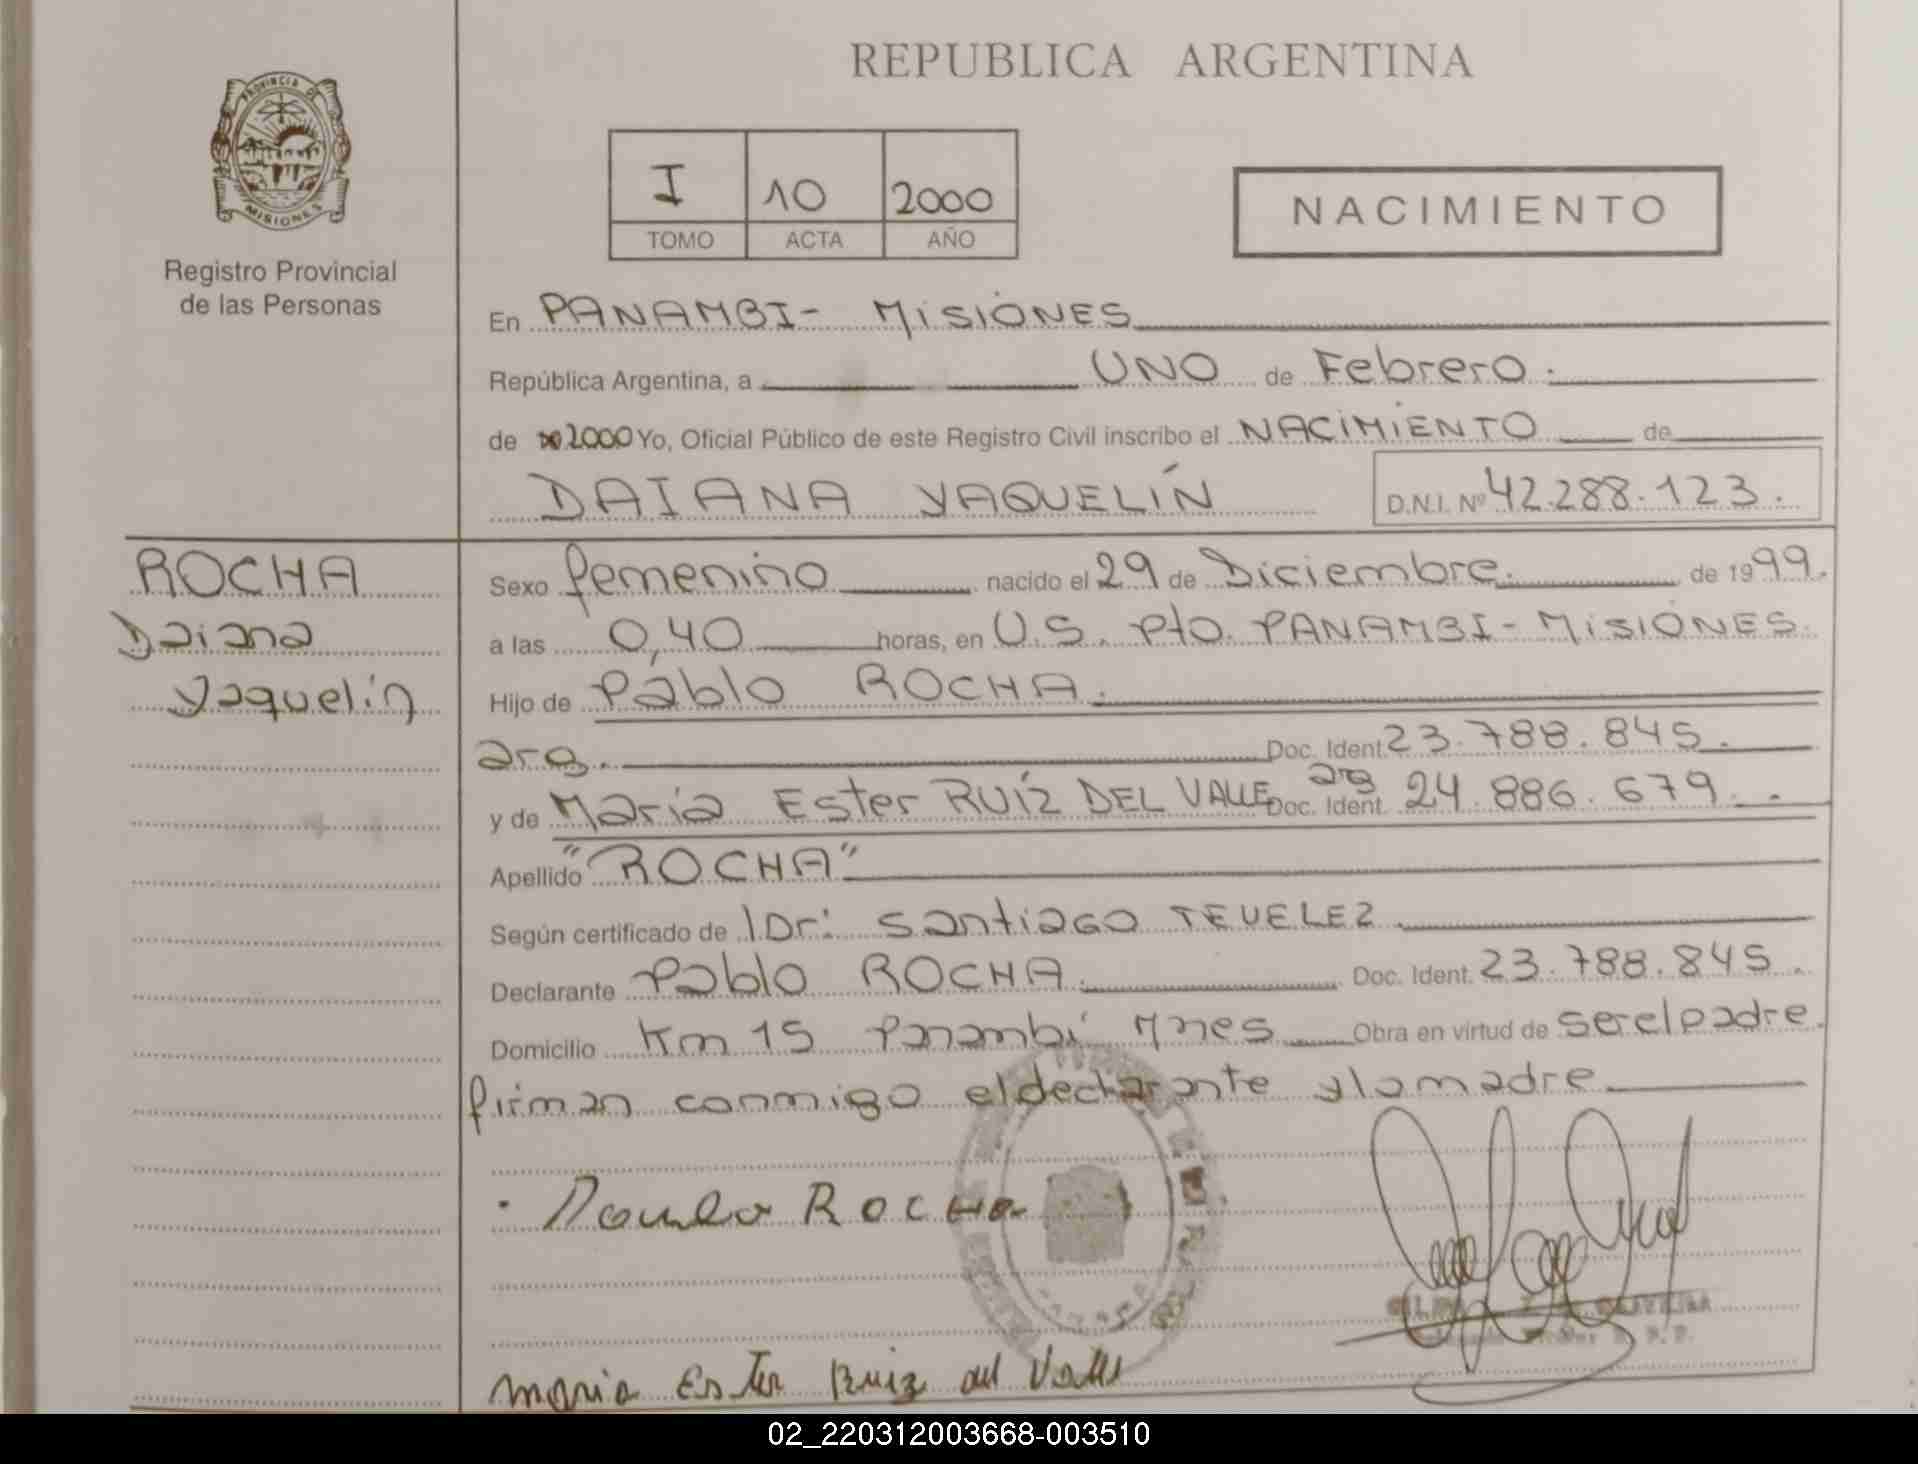 PROVINCIA DE
MISIONES
Registro Provincial
de las Personas
REPUBLICA ARGENTINA
I 10 2000
TOMO ACTA AÑO
NACIMIENTO
En PANAMBI - MISIONES
República Argentina, a UNO de Febrero.
de 2000 Yo, Oficial Público de este Registro Civil inscribo el NACIMIENTO de
DAIANA YAQUELÍN D.N.I. Nº 42.288.123.
ROCHA
Daiana
Yaquelín
Sexo femenino nacido el 29 de Diciembre. de 1999.
a las 0,40 horas, en U.S. Pto. PANAMBI - MISIONES.
Hijo de Pablo ROCHA.
arg. Doc. Ident. 23.788.845.
y de María Ester RUÍZ DEL VALLE arg Doc. Ident. 24.886.679.
Apellido "ROCHA"
Según certificado de Dr: Santiago TEVELEZ.
Declarante Pablo ROCHA. Doc. Ident. 23.788.845.
Domicilio Km 15 Panambí Mnes Obra en virtud de ser el padre.
firman conmigo el declarante y la madre.
ROCHA
Maria Ester Ruiz del Valle
OLIVEIRA
02_220312003668-003510